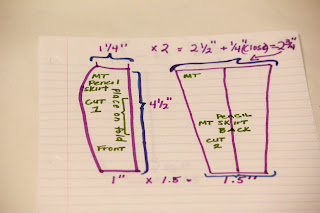 1 1/4" × 2 = 2 1/2" + 1/4" (close) = 2 3/4"
MT
Pencil
Skirt
CUT
1
Place on fold
Front
4 1/2"
MT
PENCIL
MT SKIRT
BACK
CUT
2
1" × 1.5 = 1.5"